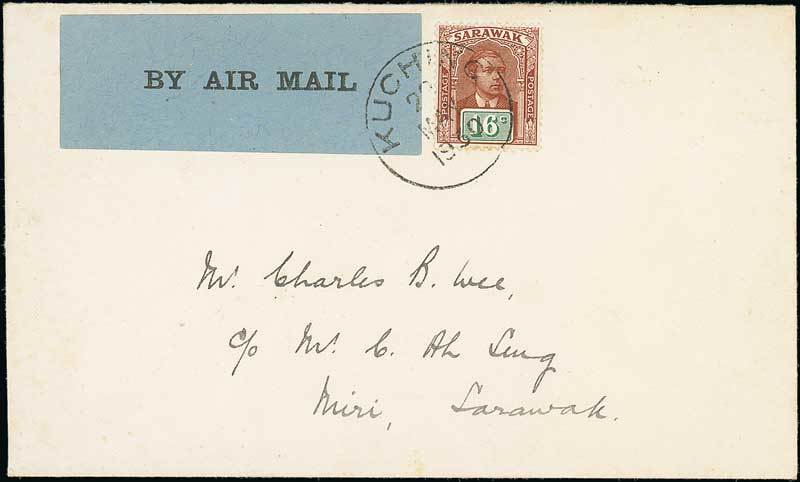 BY AIR MAIL
SARAWAK
POSTAGE
POSTAGE
16c
KUCHING
MAY
Mr. Charles B. Wee,
c/o Mr. C. Ah Leng
Miri, Sarawak.